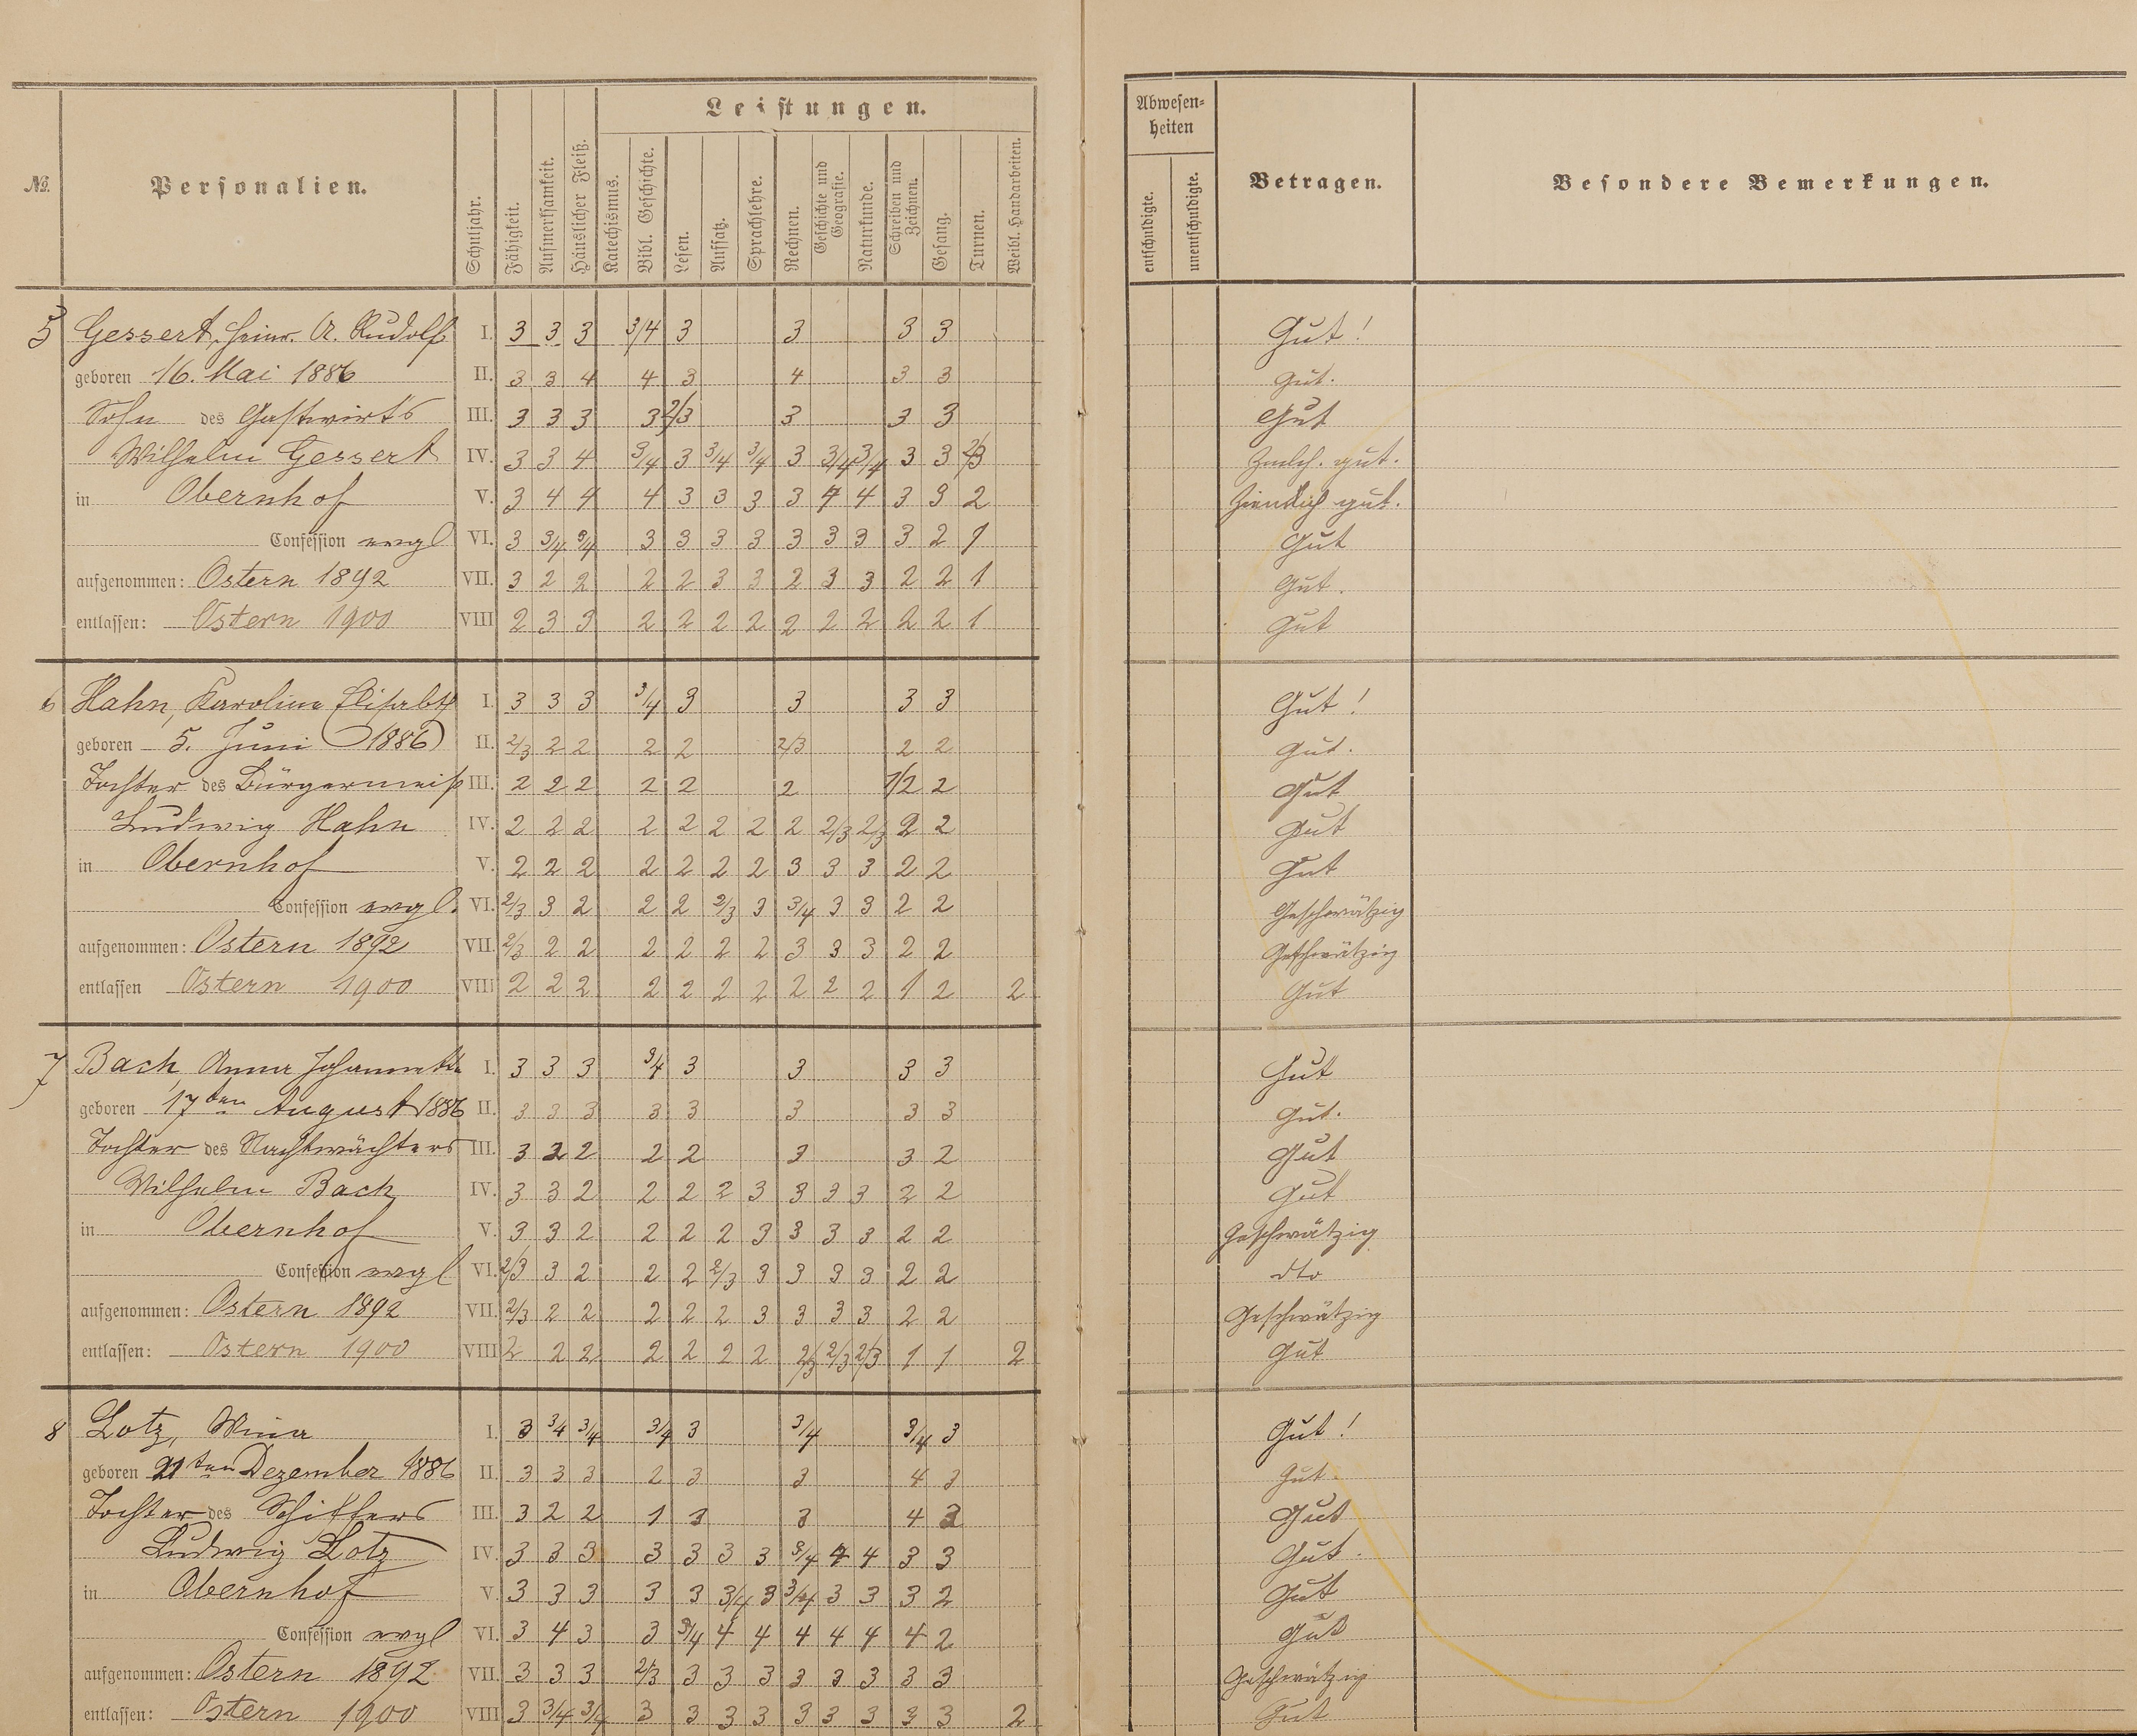 Leistungen.
No. Personalien. Schuljahr. Fähigkeit. Aufmerksamkeit. Häuslicher Fleiß. Katechismus. Bibl. Geschichte. Lesen. Aufsatz. Sprachlehre. Rechnen. Geschichte und Geografie. Naturkunde. Schreiben und Zeichnen. Gesang. Turnen. Weibl. Handarbeiten.
Abwesenheiten
entschuldigte. unentschuldigte. Betragen. Besondere Bemerkungen.
5 Gessert, Heinr. A. Rudolf I. 3 3 3 3/4 3 3 3 3 Gut!
geboren 16. Mai 1886 II. 3 3 4 4 3 4 3 3 Gut.
Sohn des Gastwirts III. 3 3 3 3 2/3 3 3 3 Gut
Wilhelm Gessert IV. 3 3 4 3/4 3 3/4 3/4 3 3/4 3/4 3 3 2/3 Zmlch. gut.
in Obernhof V. 3 4 4 4 3 3 3 3 4 4 3 3 2 Ziemlich gut.
Confession evgl VI. 3 3/4 3/4 3 3 3 3 3 3 3 3 2 1 Gut
aufgenommen: Ostern 1892 VII. 3 2 2 2 2 3 3 2 3 3 2 2 1 Gut.
entlassen: Ostern 1900 VIII 2 3 3 2 2 2 2 2 2 2 2 2 1 Gut
6 Hahn, Karolina Elisabth I. 3 3 3 3/4 3 3 3 3 Gut!
geboren 5. Juni 1886 II. 2/3 2 2 2 2 2/3 2 2 Gut.
Tochter des Bürgermeist III. 2 2 2 2 2 2 1/2 2 Gut
Ludwig Hahn IV. 2 2 2 2 2 2 2 2 2/3 2/3 2 2 Gut
in Obernhof V. 2 2 2 2 2 2 2 3 3 3 2 2 Gut
Confession evgl. VI. 2/3 3 2 2 2 2/3 3 3/4 3 3 2 2 Geschwätzig
aufgenommen: Ostern 1892 VII. 2/3 2 2 2 2 2 2 3 3 3 2 2 Geschwätzig
entlassen Ostern 1900 VIII 2 2 2 2 2 2 2 2 2 2 1 2 2 Gut
7 Bach, Anna Johannette I. 3 3 3 3/4 3 3 3 3 Gut
geboren 17ten August 1886 II. 3 3 3 3 3 3 3 3 Gut.
Tochter des Nachtwächters III. 3 2 2 2 2 3 3 2 Gut
Wilhelm Bach IV. 3 3 2 2 2 2 3 3 3 3 2 2 Gut
in Obernhof V. 3 3 2 2 2 2 3 3 3 3 2 2 Geschwätzig
Confession evgl VI. 2/3 3 2 2 2 2/3 3 3 3 3 2 2 dto
aufgenommen: Ostern 1892 VII. 2/3 2 2 2 2 2 3 3 3 3 2 2 Geschwätzig
entlassen: Ostern 1900 VIII 2 2 2 2 2 2 2 2/3 2/3 2/3 1 1 2 Gut
8 Lotz, Mina I. 3 3/4 3/4 3/4 3 3/4 3/4 3 Gut!
geboren 21ten Dezember 1886 II. 3 3 3 2 3 3 4 3 Gut
Tochter des Schiffers III. 3 2 2 1 3 3 4 2 Gut
Ludwig Lotz IV. 3 3 3 3 3 3 3 3/4 4 4 3 3 Gut.
in Obernhof V. 3 3 3 3 3 3/4 3 3/4 3 3 3 2 Gut
Confession evgl VI. 3 4 3 3 3/4 4 4 4 4 4 4 2 Gut
aufgenommen: Ostern 1892 VII. 3 3 3 2/3 3 3 3 3 3 3 3 3 Geschwätzig
entlassen: Ostern 1900 VIII 3 3/4 3/4 3 3 3 3 3 3 3 3 3 2 Gut